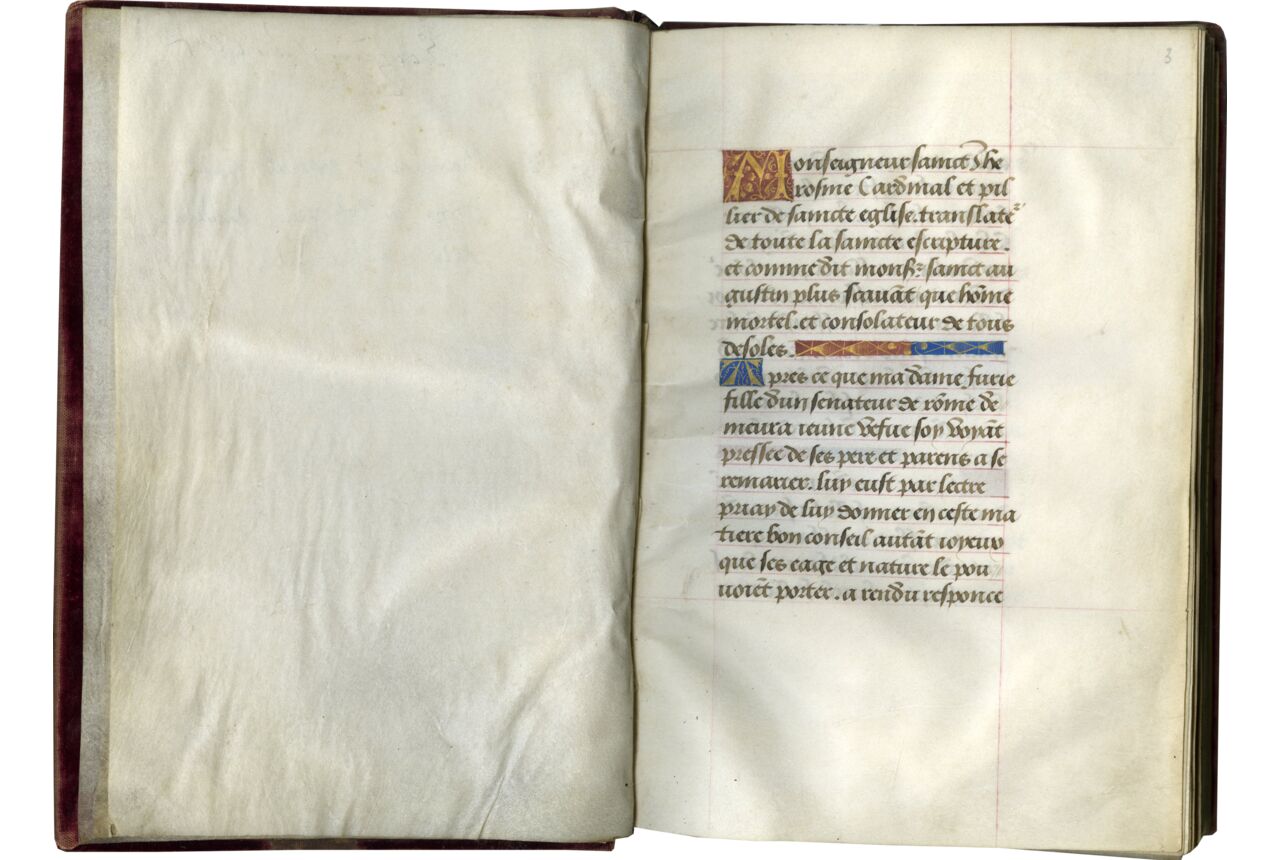 3
Monseigneur sainct Ihe
rosme Cardinal et pil
lier de saincte eglise. translate²
de toute la saincte escripture.
et comme dit monsr̄ sainct au
gustin plus scauāt que hōme
mortel. et consolateur de tous
desoles.
Apres ce que ma dame furie
fille dun senateur de rōme de
meura ieune vefue soy voyāt
pressee de ses pere et parens a se
remarier. luy eust par lectre
priay de luy donner en ceste ma
tiere bon conseil autāt ioyeux
que ses eage et nature le pou
uoiēt porter. a rendu responce